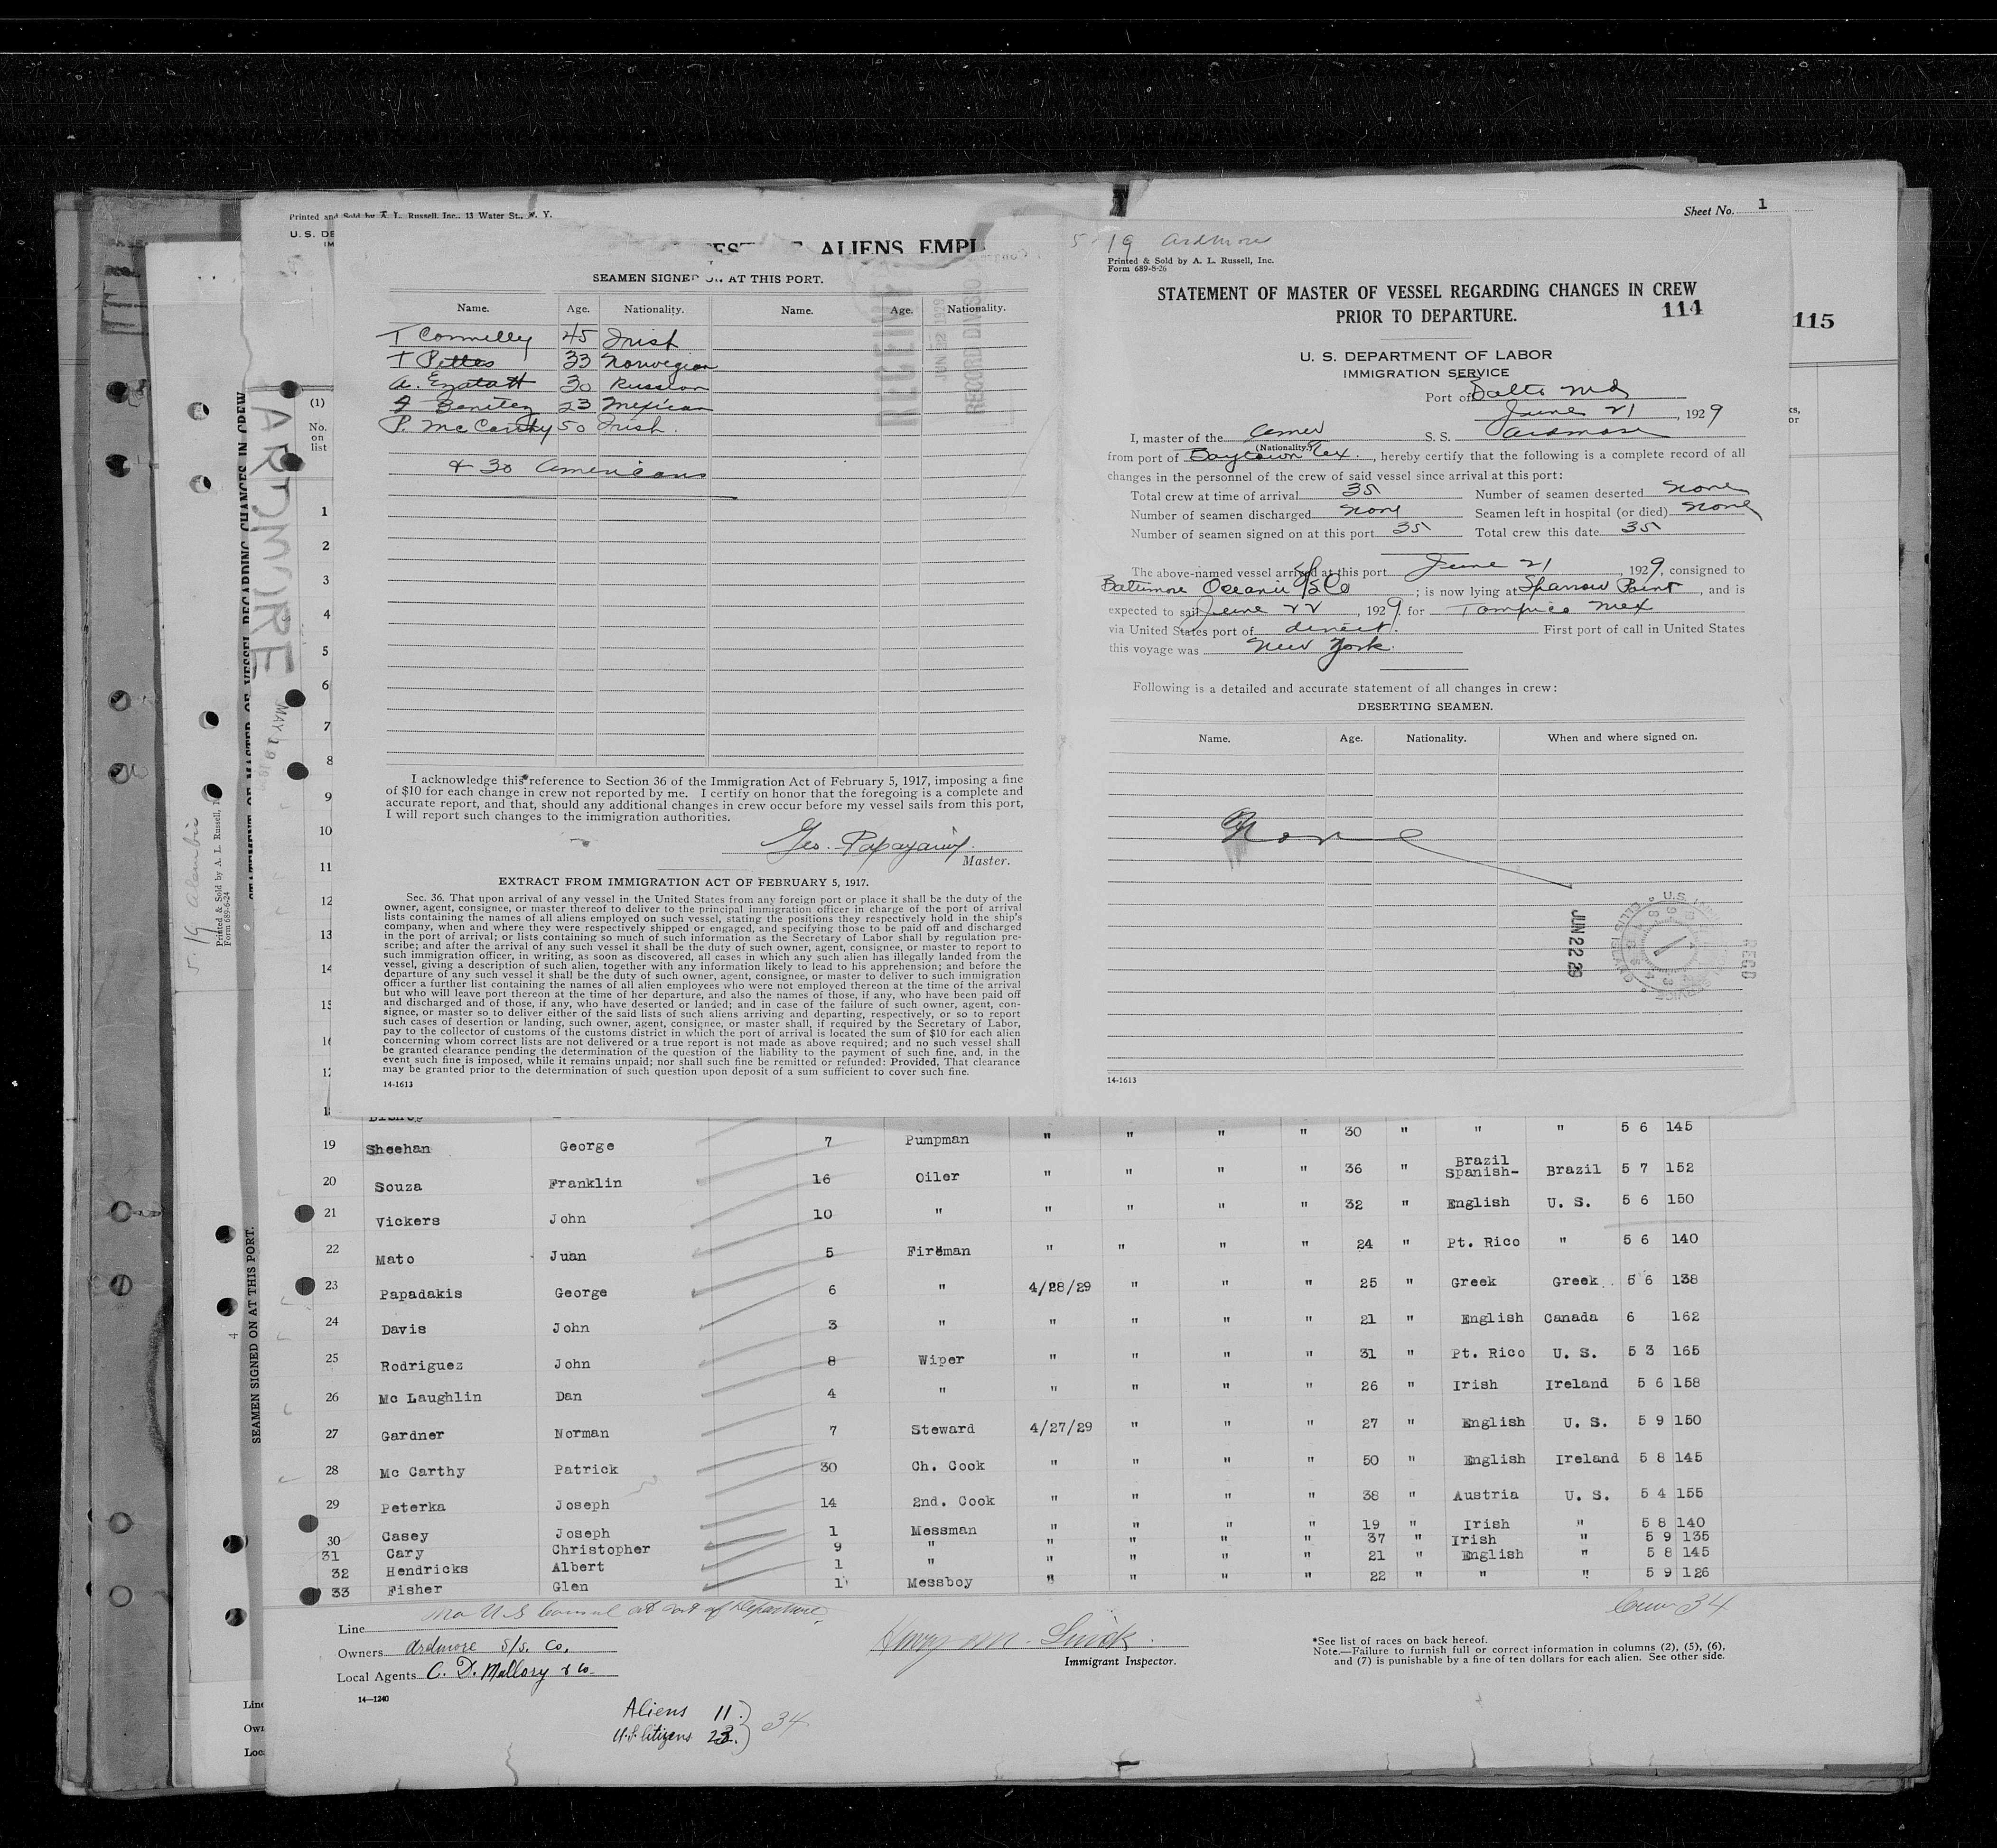 Printed and Sold by A. L. Russell, Inc., 13 Water St., N. Y.
U. S. DE
Sheet No. 1
115
ALIENS EMPL
SEAMEN SIGNED ON AT THIS PORT.
Name. Age. Nationality. Name. Age. Nationality.
T Connelly 45 Irish
T Pettes 33 Norwegian
30 Russian
Benitez 23 Mexican
P. McCarthy 50 Irish.
& 30 Americans
RECEIVED
JUN 22 1929
RECORD DIVISION
I acknowledge this reference to Section 36 of the Immigration Act of February 5, 1917, imposing a fine
of $10 for each change in crew not reported by me. I certify on honor that the foregoing is a complete and
accurate report, and that, should any additional changes in crew occur before my vessel sails from this port,
I will report such changes to the immigration authorities.
Geo.
Master.
EXTRACT FROM IMMIGRATION ACT OF FEBRUARY 5, 1917.
Sec. 36. That upon arrival of any vessel in the United States from any foreign port or place it shall be the duty of the
owner, agent, consignee, or master thereof to deliver to the principal immigration officer in charge of the port of arrival
lists containing the names of all aliens employed on such vessel, stating the positions they respectively hold in the ship's
company, when and where they were respectively shipped or engaged, and specifying those to be paid off and discharged
in the port of arrival; or lists containing so much of such information as the Secretary of Labor shall by regulation pre-
scribe; and after the arrival of any such vessel it shall be the duty of such owner, agent, consignee, or master to report to
such immigration officer, in writing, as soon as discovered, all cases in which any such alien has illegally landed from the
vessel, giving a description of such alien, together with any information likely to lead to his apprehension; and before the
departure of any such vessel it shall be the duty of such owner, agent, consignee, or master to deliver to such immigration
officer a further list containing the names of all alien employees who were not employed thereon at the time of the arrival
but who will leave port thereon at the time of her departure, and also the names of those, if any, who have been paid off
and discharged and of those, if any, who have deserted or landed; and in case of the failure of such owner, agent, con-
signee, or master so to deliver either of the said lists of such aliens arriving and departing, respectively, or so to report
such cases of desertion or landing, such owner, agent, consignee, or master shall, if required by the Secretary of Labor,
pay to the collector of customs of the customs district in which the port of arrival is located the sum of $10 for each alien
concerning whom correct lists are not delivered or a true report is not made as above required; and no such vessel shall
be granted clearance pending the determination of the question of the liability to the payment of such fine, and, in the
event such fine is imposed, while it remains unpaid; nor shall such fine be remitted or refunded: Provided, That clearance
may be granted prior to the determination of such question upon deposit of a sum sufficient to cover such fine.
14-1613
5-19 Ardmore
Printed & Sold by A. L. Russell, Inc.
Form 689-8-26
STATEMENT OF MASTER OF VESSEL REGARDING CHANGES IN CREW
PRIOR TO DEPARTURE.
114
U. S. DEPARTMENT OF LABOR
IMMIGRATION SERVICE
Port of Balto Md
June 21, 1929
I, master of the Amer S. S. Ardmore
(Nationality.)
from port of Baytown Tex., hereby certify that the following is a complete record of all
changes in the personnel of the crew of said vessel since arrival at this port:
Total crew at time of arrival 35 Number of seamen deserted None
Number of seamen discharged None Seamen left in hospital (or died) None
Number of seamen signed on at this port 35 Total crew this date 35
The above-named vessel arrived at this port June 21, 1929, consigned to
Baltimore Oceanic S/S Co; is now lying at Sparrow Point, and is
expected to sail June 22, 1929 for Tampico Mex
via United States port of direct. First port of call in United States
this voyage was New York.
Following is a detailed and accurate statement of all changes in crew:
DESERTING SEAMEN.
Name. Age. Nationality. When and where signed on.
None
JUN 22 29
REC'D
14-1613
ARDMORE
STATEMENT OF MASTER OF VESSEL REGARDING CHANGES IN CREW
SEAMEN SIGNED ON AT THIS PORT.
5.19 Alambic
Printed & Sold by A. L. Russell, I
Form 689-6-24
(1)
No.
on
list
1
2
3
4
5
6
7
8
9
10
11
12
13
14
15
19 Sheehan George 7 Pumpman " " " " 30 " " " 5 6 145
20 Souza Franklin 16 Oiler " " " " 36 " Brazil Spanish- Brazil 5 7 152
21 Vickers John 10 " " " " " 32 " English U. S. 5 6 150
22 Mato Juan 5 Fireman " " " " 24 " Pt. Rico " 5 6 140
23 Papadakis George 6 " 4/28/29 " " " 25 " Greek Greek 5 6 138
24 Davis John 3 " " " " " 21 " English Canada 6 162
25 Rodriguez John 8 Wiper " " " " 31 " Pt. Rico U. S. 5 3 165
26 Mc Laughlin Dan 4 " " " " " 26 " Irish Ireland 5 6 158
27 Gardner Norman 7 Steward 4/27/29 " " " 27 " English U. S. 5 9 150
28 Mc Carthy Patrick 30 Ch. Cook " " " " 50 " English Ireland 5 8 145
29 Peterka Joseph 14 2nd. Cook " " " " 38 " Austria U. S. 5 4 155
30 Casey Joseph 1 Messman " " " " 19 " Irish " 5 8 140
31 Cary Christopher 9 " " " " " 37 " Irish " 5 9 135
32 Hendricks Albert 1 " " " " " 21 " English " 5 8 145
33 Fisher Glen 1 Messboy " " " " 22 " " " 5 9 126
No U S Consul at Port of Departure
Crew 34
Line
Owners Ardmore S/S. Co.
Local Agents C. D. Mallory & Co
Immigrant Inspector.
*See list of races on back hereof.
Note.—Failure to furnish full or correct information in columns (2), (5), (6),
and (7) is punishable by a fine of ten dollars for each alien. See other side.
14—1240
Aliens 11
U.S. Citizens 23. 34